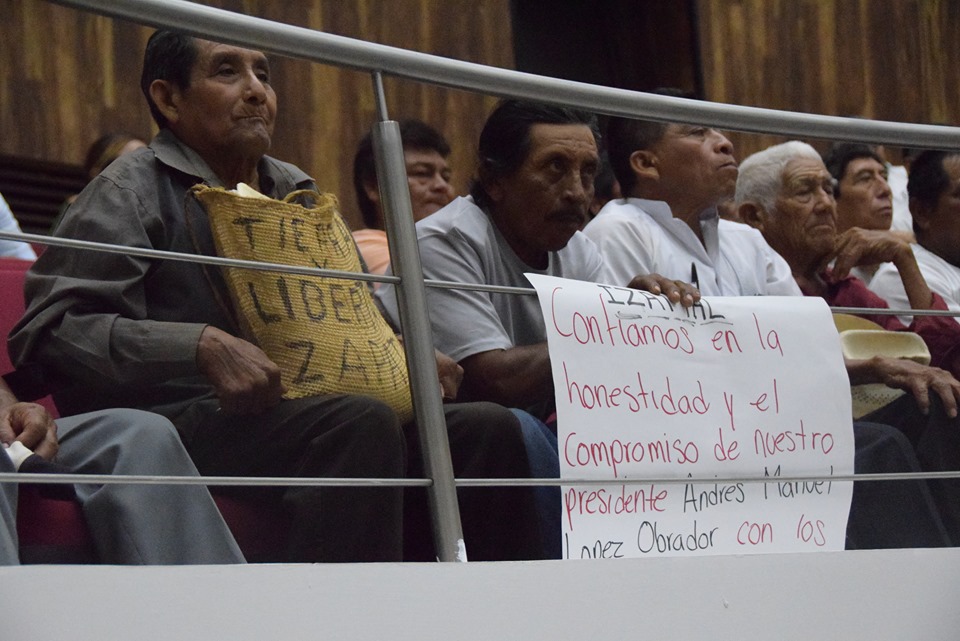 TIERRA
Y
LIBERTAD
IZAM
IZAMAL
Confiamos en la
honestidad y el
compromiso de nuestro
presidente Andres Manuel
Lopez Obrador con los